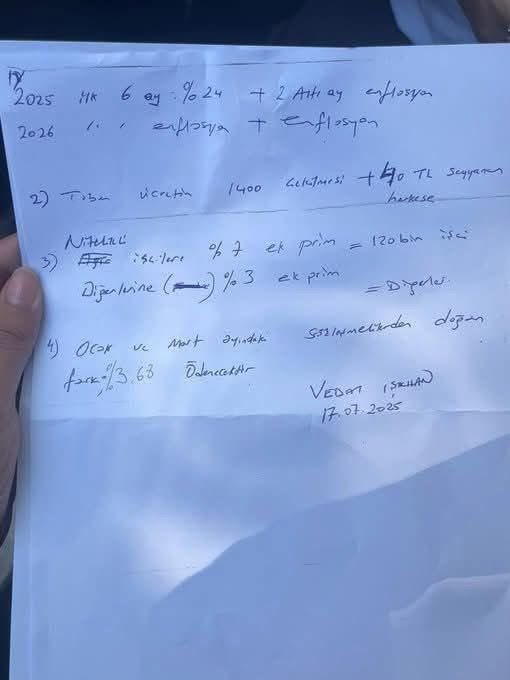 1)
2025 ilk 6 ay: %24 + 2. Altı ay enflasyon
2026 " " enflasyon + enflasyon
2) Taban ücretin 1400 çekilmesi + 40 TL seyyanen
herkese
NİTELİKLİ
3) işçilere %7 ek prim = 120 bin işçi
Diğerlerine ( ) %3 ek prim = Diğerler.
4) Ocak ve Mart ayındaki sözleşmelilerden doğan
fark %3.63 Ödenecektir
VEDAT IŞIKHAN
17.07.2025